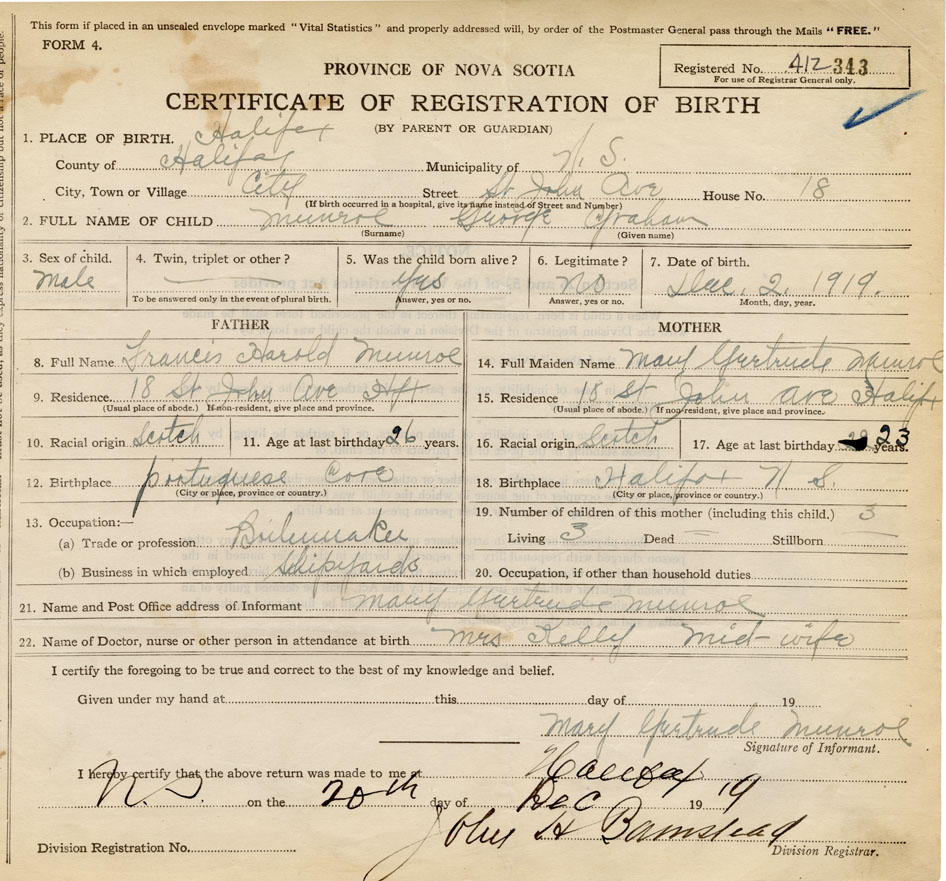 This form if placed in an unsealed envelope marked "Vital Statistics" and properly addressed will, by order of the Postmaster General pass through the Mails "FREE."
FORM 4.
Registered No. 412 343
For use of Registrar General only.
PROVINCE OF NOVA SCOTIA
CERTIFICATE OF REGISTRATION OF BIRTH
(BY PARENT OR GUARDIAN)
1. PLACE OF BIRTH. Halifax
County of Halifax Municipality of N. S.
City, Town or Village City Street St John Ave House No. 18
(If birth occurred in a hospital, give its name instead of Street and Number)
2. FULL NAME OF CHILD Munroe George Graham
(Surname) (Given name)
3. Sex of child. 4. Twin, triplet or other? 5. Was the child born alive? 6. Legitimate? 7. Date of birth.
Male Yes No Dec. 2. 1919.
To be answered only in the event of plural birth. Answer, yes or no. Answer, yes or no. Month, day, year.
FATHER MOTHER
8. Full Name Francis Harold Munroe 14. Full Maiden Name Mary Gertrude Munroe
9. Residence 18 St John Ave Hfx 15. Residence 18 St John Ave Halifx
(Usual place of abode.) If non-resident, give place and province. (Usual place of abode.) If non-resident, give place and province.
10. Racial origin Scotch 11. Age at last birthday 26 years. 16. Racial origin Scotch 17. Age at last birthday 23 years.
12. Birthplace portuguese Cove 18. Birthplace Halifax N S.
(City or place, province or country.) (City or place, province or country.)
13. Occupation:— 19. Number of children of this mother (including this child.) 3
(a) Trade or profession Boilermaker Living 3 Dead — Stillborn
(b) Business in which employed Shipyards 20. Occupation, if other than household duties
21. Name and Post Office address of Informant Mary Gertrude Munroe
22. Name of Doctor, nurse or other person in attendance at birth Mrs Kelly Mid-wife
I certify the foregoing to be true and correct to the best of my knowledge and belief.
Given under my hand at this day of 19
Mary Gertrude Munroe
Signature of Informant.
I hereby certify that the above return was made to me at Halifax
N.S. on the 20th day of Dec 19 19
John H Barnstead
Division Registration No. Division Registrar.